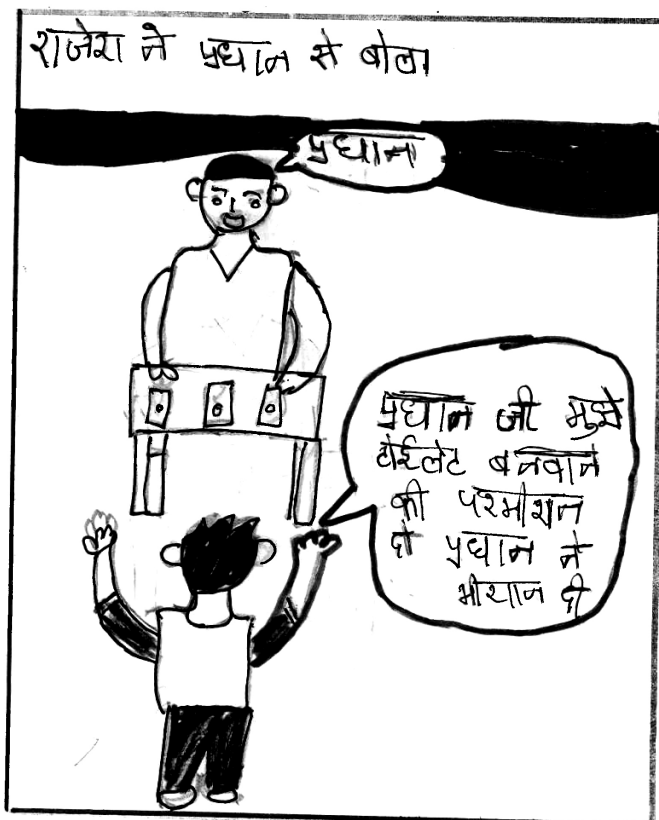 राजेश ने प्रधान से बोला
प्रधान
प्रधान जी मुझे
टोईलेट बनवाने
की परमीशन
दो प्रधान ने
मीशान दी